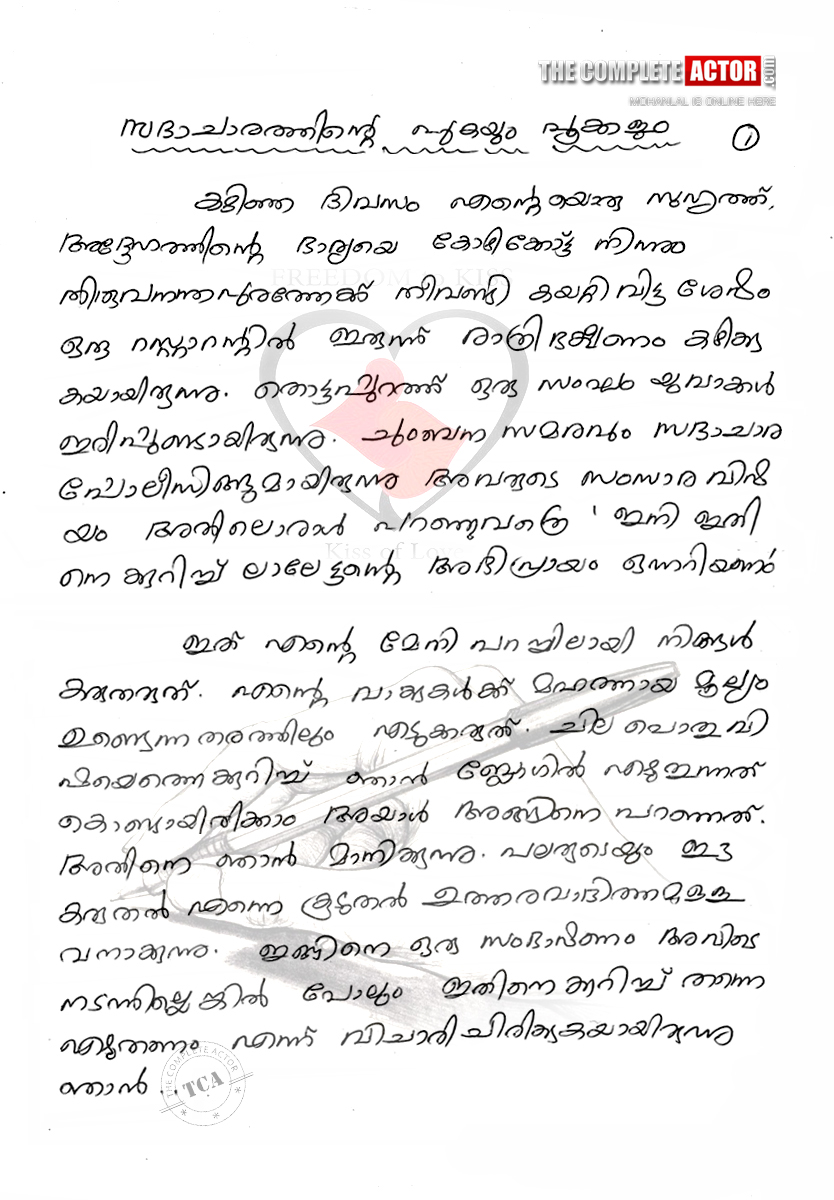 THE COMPLETE ACTOR .com
MOHANLAL IS ONLINE HERE
സദാചാരത്തിന്റെ പുകയും പൂക്കളും ①
കഴിഞ്ഞ ദിവസം എന്റെയൊരു സുഹൃത്ത്,
അദ്ദേഹത്തിന്റെ ഭാര്യയെ കോഴിക്കോട്ട് നിന്നും
FREEDOM to KISS
തിരുവനന്തപുരത്തേക്ക് തീവണ്ടി കയറ്റി വിട്ട ശേഷം
ഒരു റസ്റ്റാറന്റിൽ ഇരുന്ന് രാത്രി ഭക്ഷണം കഴിക്കു
കയായിരുന്നു. തൊട്ടപ്പുറത്ത് ഒരു സംഘം യുവാക്കൾ
ഇരിപ്പുണ്ടായിരുന്നു. ചുംബന സമരവും സദാചാര
പോലീസിങ്ങുമായിരുന്നു അവരുടെ സംസാര വിഷ
യം അതിലൊരാൾ പറഞ്ഞുവത്രെ ' ഇനി ഇതി
Kiss of Love
നെ ക്കുറിച്ച് ലാലേട്ടന്റെ അഭിപ്രായം ഒന്നറിയണം
ഇത് എന്റെ മേനി പറച്ചിലായി നിങ്ങൾ
കരുതരുത്. എന്റെ വാക്കുകൾക്ക് മഹത്തായ മൂല്യം
ഉണ്ടെന്ന തരത്തിലും എടുക്കരുത്. ചില പൊതു വി
ഷയെത്തെ ക്കുറിച്ച് ഞാൻ ബ്ലോഗിൽ എഴുതുന്നത്
കൊണ്ടായിരിക്കാം അയാൾ അങ്ങിനെ പറഞ്ഞത്.
അതിനെ ഞാൻ മാനിക്കുന്നു. പലരുടെയും ഈ
കരുതൽ എന്നെ കൂടുതൽ ഉത്തരവാദിത്തമുള്ള
വനാക്കുന്നു. ഇങ്ങിനെ ഒരു സംഭാഷണം അവിടെ
നടന്നില്ലെങ്കിൽ പോലും ഇതിനെ ക്കുറിച്ച് തന്നെ
എഴുതണം എന്ന് വിചാരിച്ചിരിക്കുകയായിരുന്നു
ഞാൻ ..
THE COMPLETE ACTOR
TCA